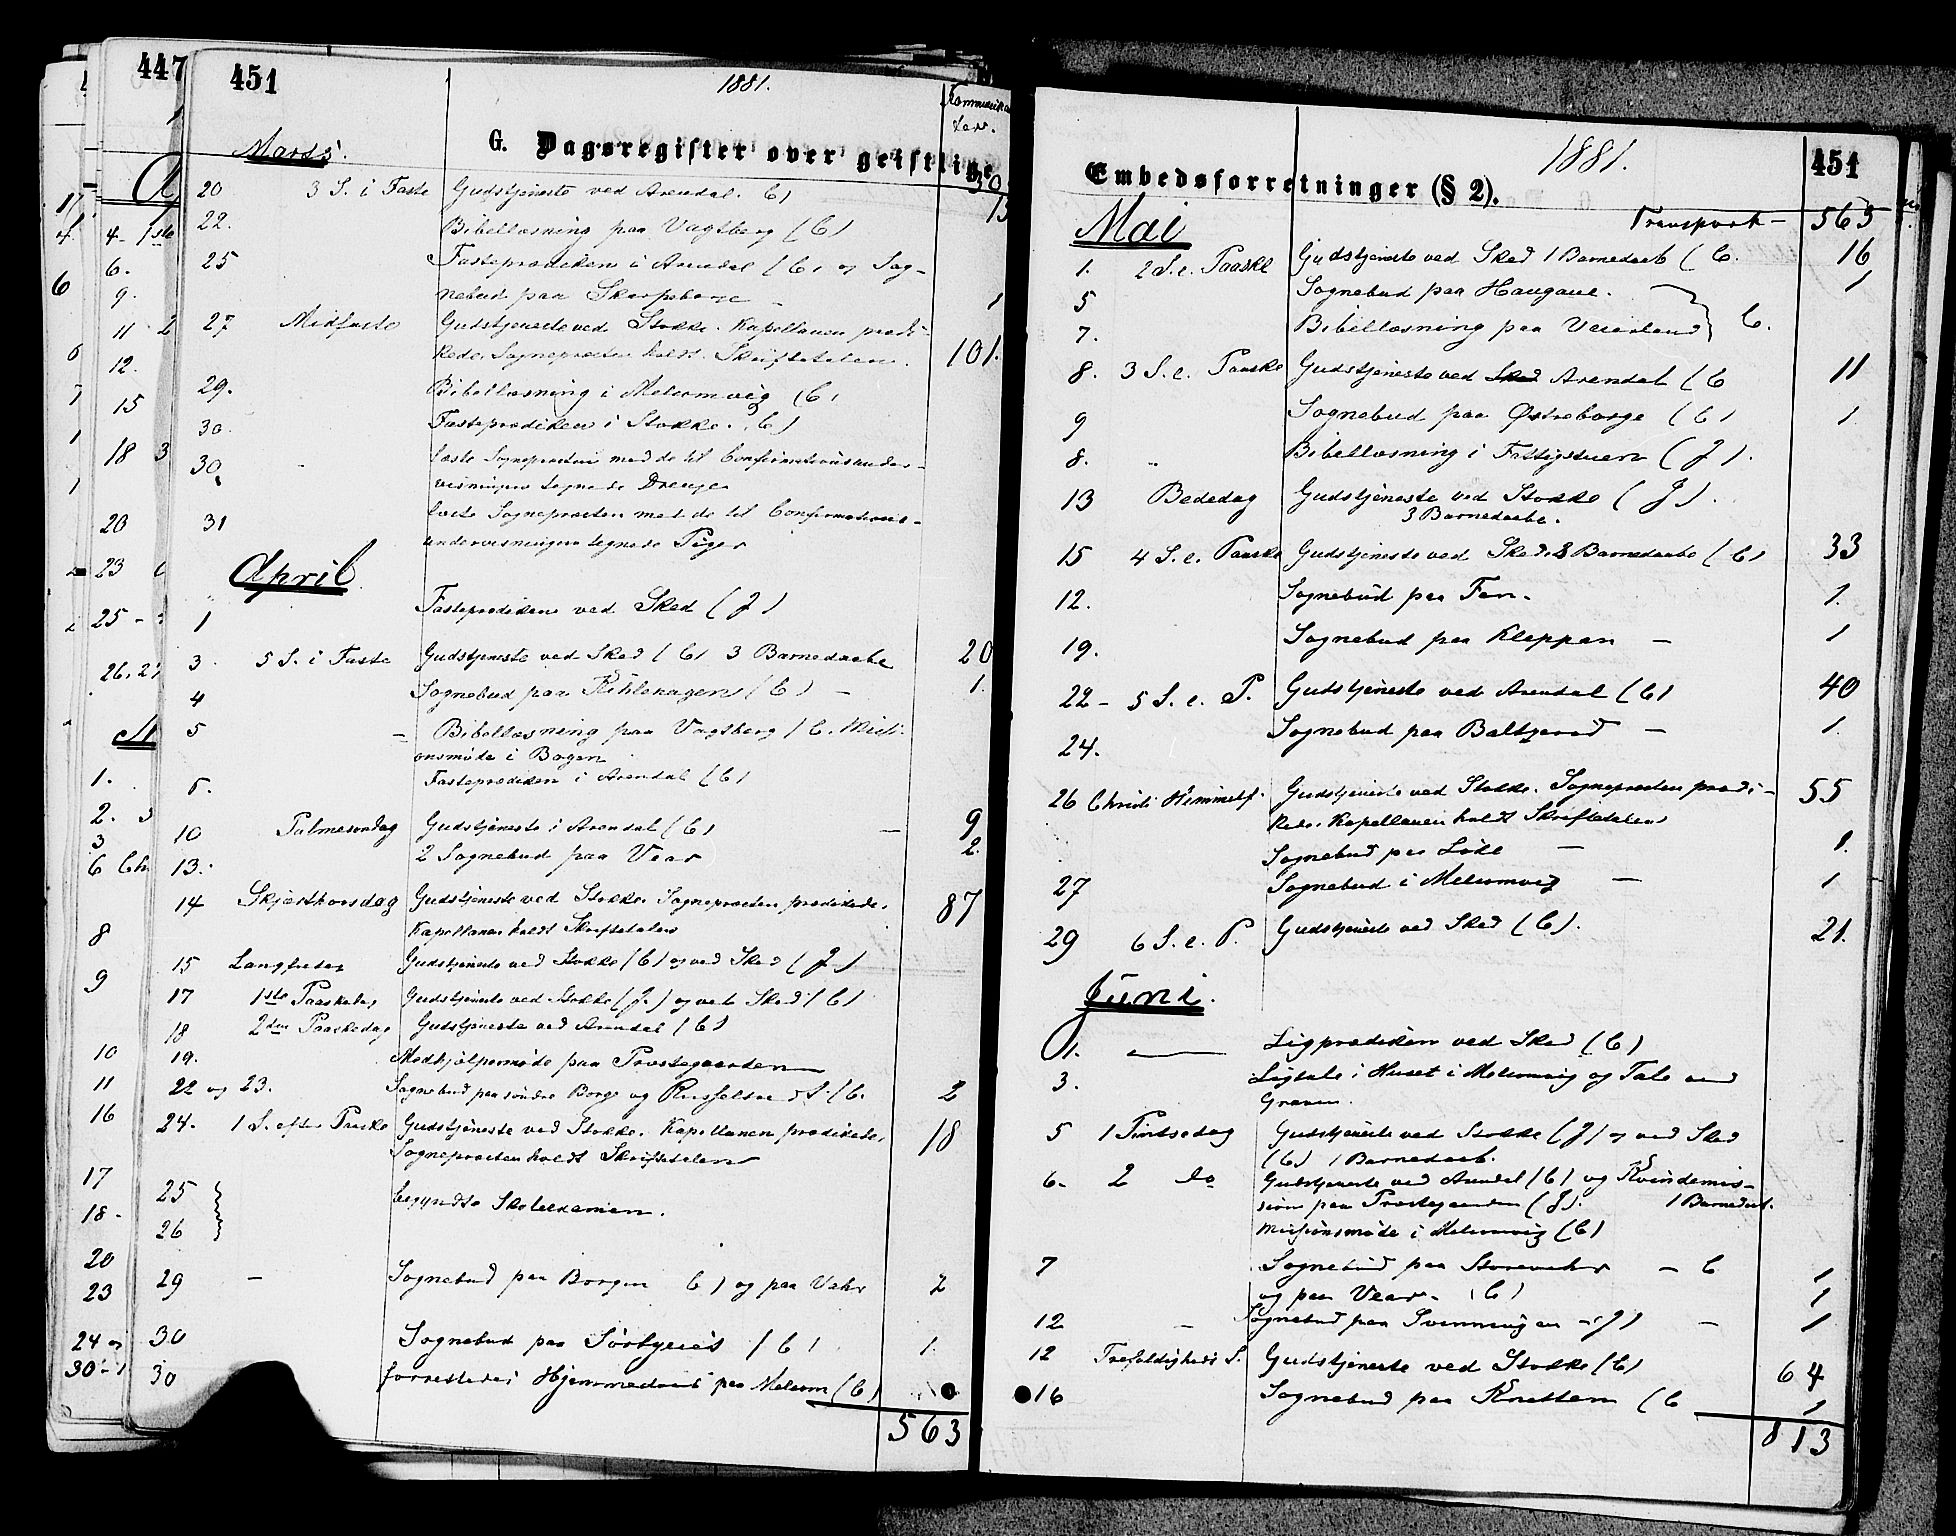 447
451
1881.
Marts.
G. Dagsregister over geistlige
20 3 S. i Faste Gudstjeneste ved Arendal. C) 30
22. Bibellæsning paa Vagtberg (C) 13
25 Fasteprædiken i Arendal (C) og Sog-
nebud paa Skorpeborge 1
27 Midfaste Gudstjeneste ved Stokke. Kapellanen prædi-
kede. Sognepræsten holdt Skriftetalen. 101.
29. Bibellæsning i Melsomvig (C)
30. Fasteprædiken i Stokke. C)
30. læste Sognepræsten med de til Confirmationsunder-
visningen tegnede Drenge
31 læste Sognepræsten med de til Confirmations-
undervisningen tegnede Piger
April
1 Fasteprædiken ved Sked (J)
3. 5 S. i Faste Gudstjeneste ved Sked (C) 3 Barnedaabe 20
4 Sognebud paa (C) — 1.
5 — Bibellæsning paa Vagtberg (C. Missi-
onsmøde i Bogen
6. Fasteprædiken i Arendal (C)
10 Palmesøndag Gudstjeneste i Arendal (C) — 9
13. 2 Sognebud paa Vear 2.
14 Skjærthorsdag Gudstjeneste ved Stokke. Sognepræsten prædikede.
Kapellanen holdt Skriftetalen 87
15 Langfredag Gudstjeneste ved Stokke (C) og ved Sked (J.)
17 1ste Paaskedag Gudstjeneste ved Stokke (J.) og ved Sked (C)
18 2den Paaskedag Gudstjeneste ved Arendal (C)
19. Medhjælpermøde paa Prestegaarden
22 og 23. Sognebud paa søndre Borge og (C. 2
24. 1 S. efter Paaske Gudstjeneste ved Stokke. Kapellanen prædikede,
Sognepræsten holdt Skriftetalen 18
25
26 begyndte Skoleexamen.
29 — Sognebud paa Borgen C) og paa 2
30 Sognebud paa (C) 1.
30 forrettedes Hjemmedaab paa Melsom (C)
563
1881.
451
Embedsforretninger (§ 2).
Mai Transport — 563
1. 2 S. e. Paaske Gudstjeneste ved Sked 1 Barnedaab (C. 16
5 Sognebud paa Haugane. 1
7. Bibellæsning paa Veierland C.
8. 3 S. e. Paaske Gudstjeneste ved Sked Arendal (C 11
9 Sognebud paa Østreborge (C) 1
8. „ Bibellæsning i Fattigstuen (J).
13 Bededag Gudstjeneste ved Stokke (J).
3 Barnedaabe.
15 4 S. e. Paaske Gudstjeneste ved Sked. 3 Barnedaabe (C) 33
12. Sognebud paa Fen. 1.
19. Sognebud paa Kleppan — 1
22 — 5 S. e. P. Gudstjeneste ved Arendal (C) 40
24. Sognebud paa — 1.
26 Christi Himmelf. Gudstjeneste ved Stokke. Sognepræsten prædi- 55
kede. Kapellanen holdt Skriftetalen
Sognebud paa Løke — 1.
27 Sognebud i Melsomvig — 1
29 6 S. e. P. Gudstjeneste ved Sked (C). 21.
Juni.
1. — Ligprædiken ved Sked (C)
3. Ligtale i Huset i Melsomvig og Tale ved
Graven.
5 1 Pintsedag Gudstjeneste ved Stokke (J) og ved Sked
(C) 1 Barnedaab.
6. 2 do Gudstjeneste ved Arendal (C) og Kvindemis-
sion paa Prestegaarden (J). 1 Barnedaab.
Missionsmøde i Melsomvig (C)
7 Sognebud paa — C 1
og paa Vear. (C) 1
12 — Sognebud paa Svinningen — J) — 1
12 Trefoldigheds S. Gudstjeneste ved Stokke (C) 64
16 Sognebud paa Knattem (C 1
813